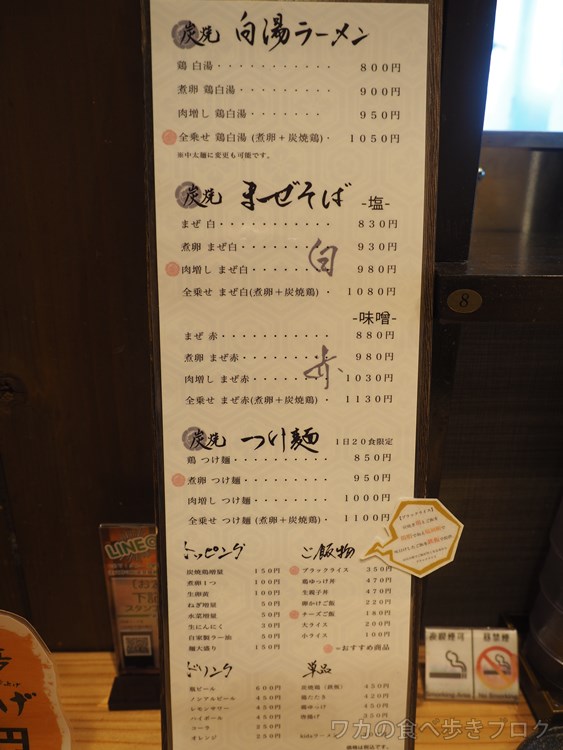 炭焼 白湯ラーメン
鶏 白湯・・・・・・・・・・・ 800円
煮卵 鶏白湯・・・・・・・・・ 900円
肉増し 鶏白湯・・・・・・・ 950円
全乗せ 鶏白湯(煮卵+炭焼鶏)・ 1050円
※中太麺に変更も可能です。
炭焼 まぜそば -塩-
まぜ 白・・・・・・・・・・・ 830円
煮卵 まぜ白・・・・・・・・・ 930円
肉増し まぜ白・・・・・・・ 980円
白
全乗せ まぜ白(煮卵+炭焼鶏)・ 1080円
-味噌-
まぜ 赤・・・・・・・・・・・ 880円
煮卵 まぜ赤・・・・・・・・・ 980円
肉増し まぜ赤・・・・・・・ 1030円
赤
全乗せ まぜ赤(煮卵+炭焼鶏)・ 1130円
炭焼 つけ麺 1日20食限定
鶏 つけ麺・・・・・・・・・・ 850円
煮卵 つけ麺・・・・・・・・・ 950円
肉増し つけ麺・・・・・・・・ 1000円
全乗せ つけ麺(煮卵+炭焼鶏) 1100円
トッピング
炭焼鶏増量 150円
煮卵1つ 100円
生卵前 100円
ねぎ増量 50円
水菜増量 50円
生にんにく 30円
自家製ラー油 50円
麺大盛り 150円
ご飯物
ブラックライス 350円
鶏ゆっけ丼 470円
生親子丼 470円
卵かけご飯 220円
チーズご飯 180円
大ライス 200円
小ライス 100円
=おすすめ商品
ドリンク
瓶ビール 600円
ノンアルビール 450円
レモンサワー 450円
ハイボール 450円
コーラ 250円
オレンジ 250円
単品
炭焼鶏(鉄板) 450円
鶏たたき
鶏ゆっけ 450円
唐揚げ
8
LINE
下記
スタンプ
喫煙可
禁煙
Smoking Area
No Smoking
円
ワカの食べ歩きブログ